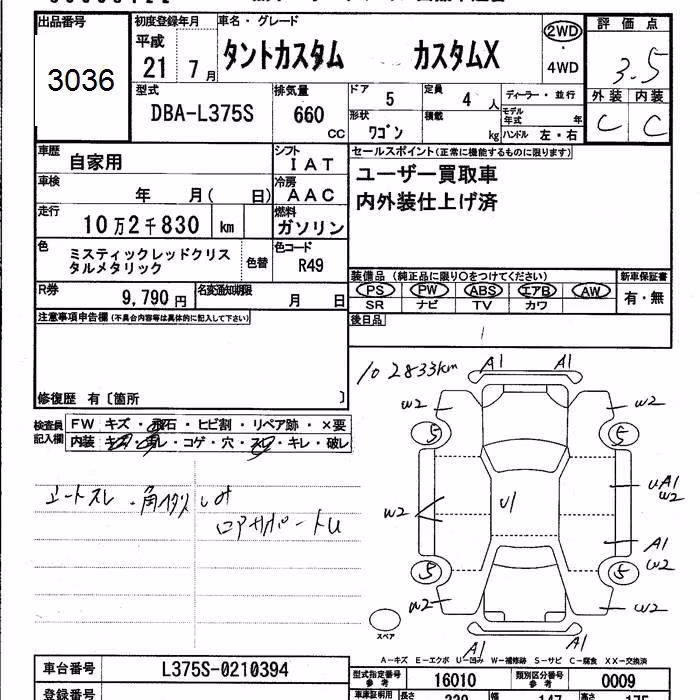 出品番号 初度登録年月 車名・グレード 2WD 評価点
3036 平成 21 7月 タントカスタム カスタムX ・ 4WD 3.5
型式 排気量 ドア 5 定員 4人 ディーラー・並行 外装 内装
DBA-L375S 660 CC 形状 ワゴン 積載 kg モデル年式 年 ハンドル 左・右 C C
車歴 自家用 シフト IAT セールスポイント(正常に機能するものに限ります)
車検 年 月( 日) 冷房 AAC ユーザー買取車
走行 10万2千830 km 燃料 ガソリン 内外装仕上げ済
色 ミスティックレッドクリスタルメタリック 色替 色コード R49
装備品(純正品に限り○をつけてください) 新車保証書
PS PW ABS エアB AW 有・無
SR ナビ TV カワ
R券 9,790円 名変通知期限 月 日
後日品
注意事項申告欄(不具合内容等は具体的に記入して下さい)
修復歴 有〔箇所 〕
102833km A1 A1
検査員記入欄 FW キズ・飛石・ヒビ割・リペア跡・×要
内装 キズ・汚レ・コゲ・穴・スレ・キレ・破レ
W2 W2
5 5
シートスレ
ロアサポートU
W2 U1 UA1 W2
A1 W2
5 5
W2 W2
A1 A1
スペア
A-キズ E-エクボ U-凹み W-補修跡 S-サビ C-腐食 XX-交換済
車台番号 L375S-0210394 型式指定番号 参考 16010 類別区分番号 参考 0009
登録番号 車庫証明用 長さ 幅 147 高さ